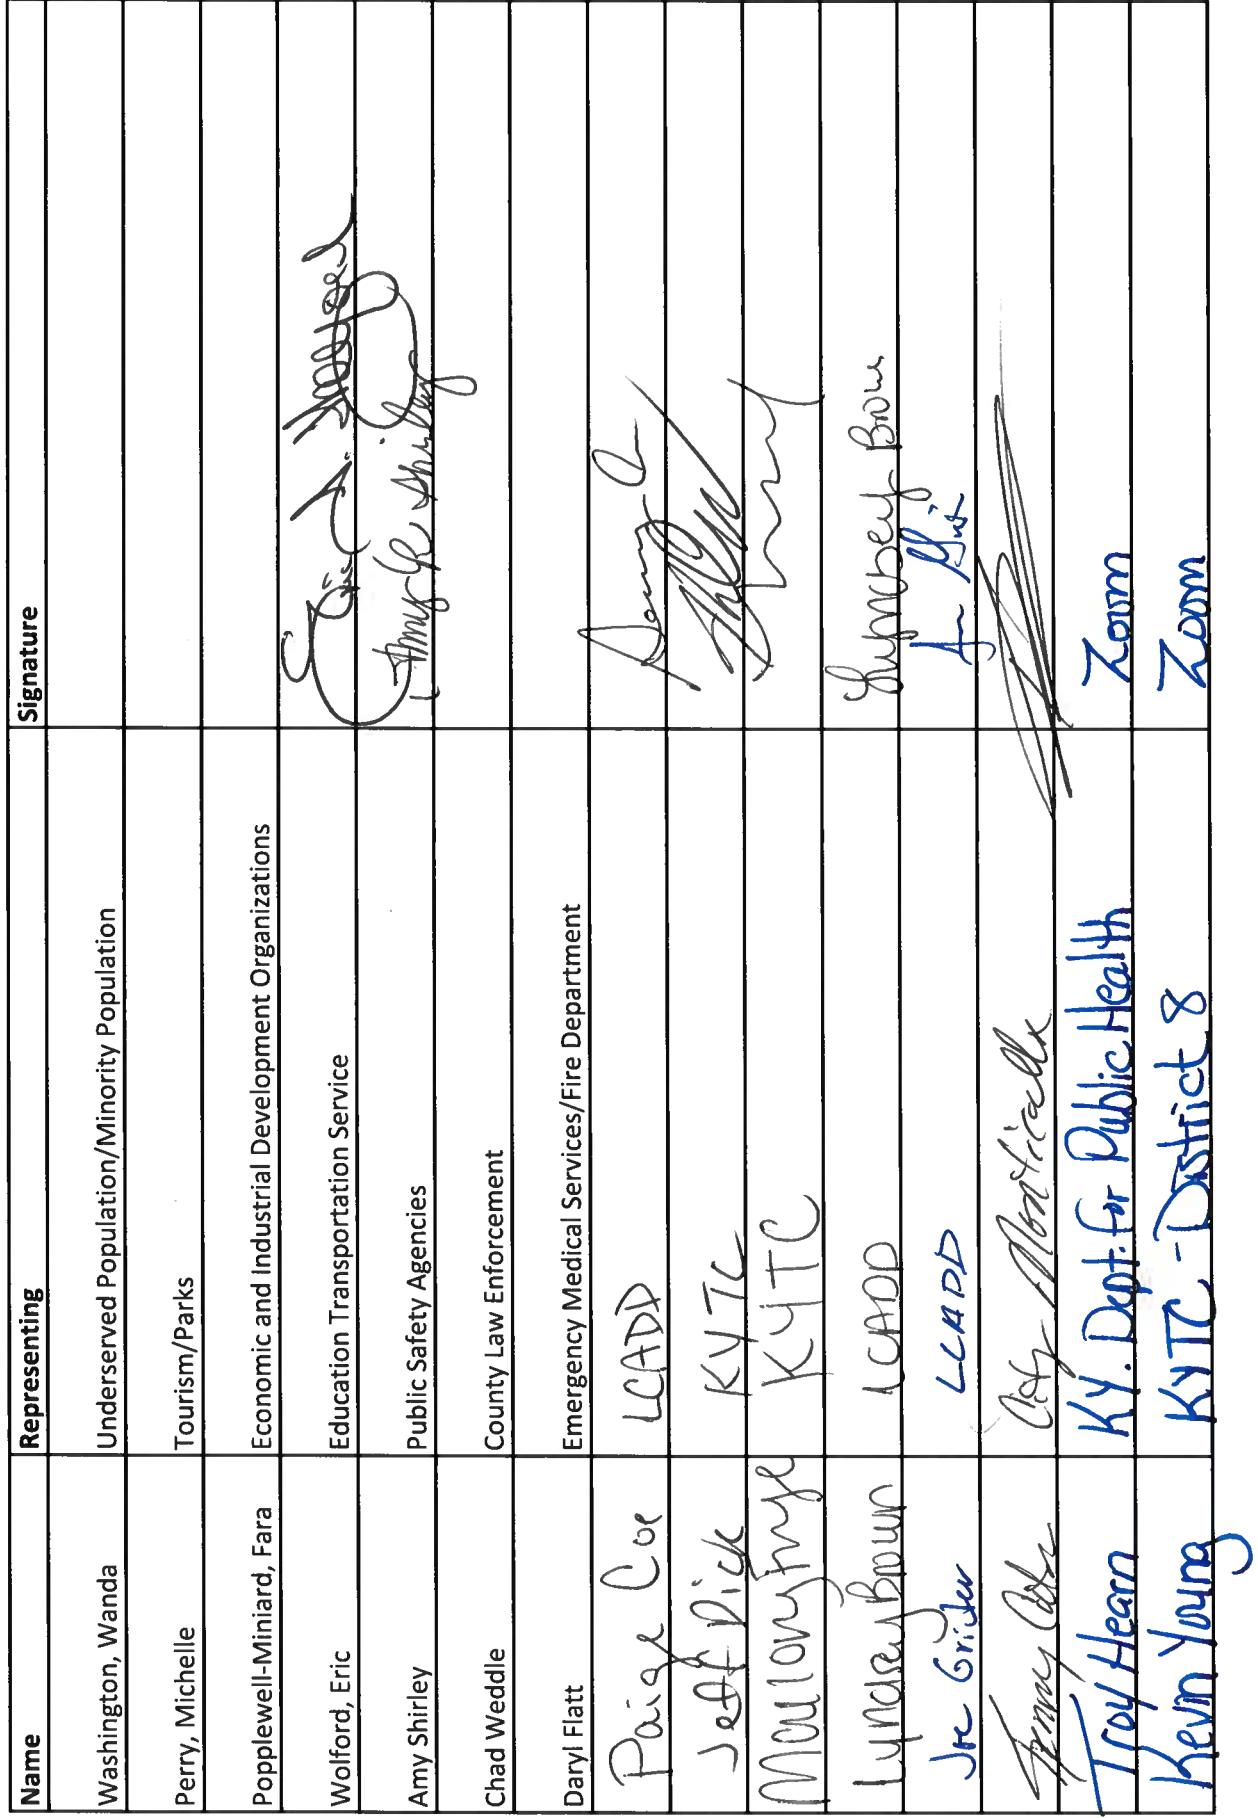 Name Representing Signature
Washington, Wanda Underserved Population/Minority Population
Perry, Michelle Tourism/Parks
Popplewell-Miniard, Fara Economic and Industrial Development Organizations
Wolford, Eric Education Transportation Service
Amy Shirley Public Safety Agencies Amy Shirley
Chad Weddle County Law Enforcement
Daryl Flatt Emergency Medical Services/Fire Department
Paige Coe LCADD
Jeff Dick KYTC
KYTC
Lyndsey Brown LCADD Brown
Joe Grider LCADD
City Monticello
Troy Hearn KY. Dept. for Public Health Zoom
Kevin Young KYTC - District 8 Zoom